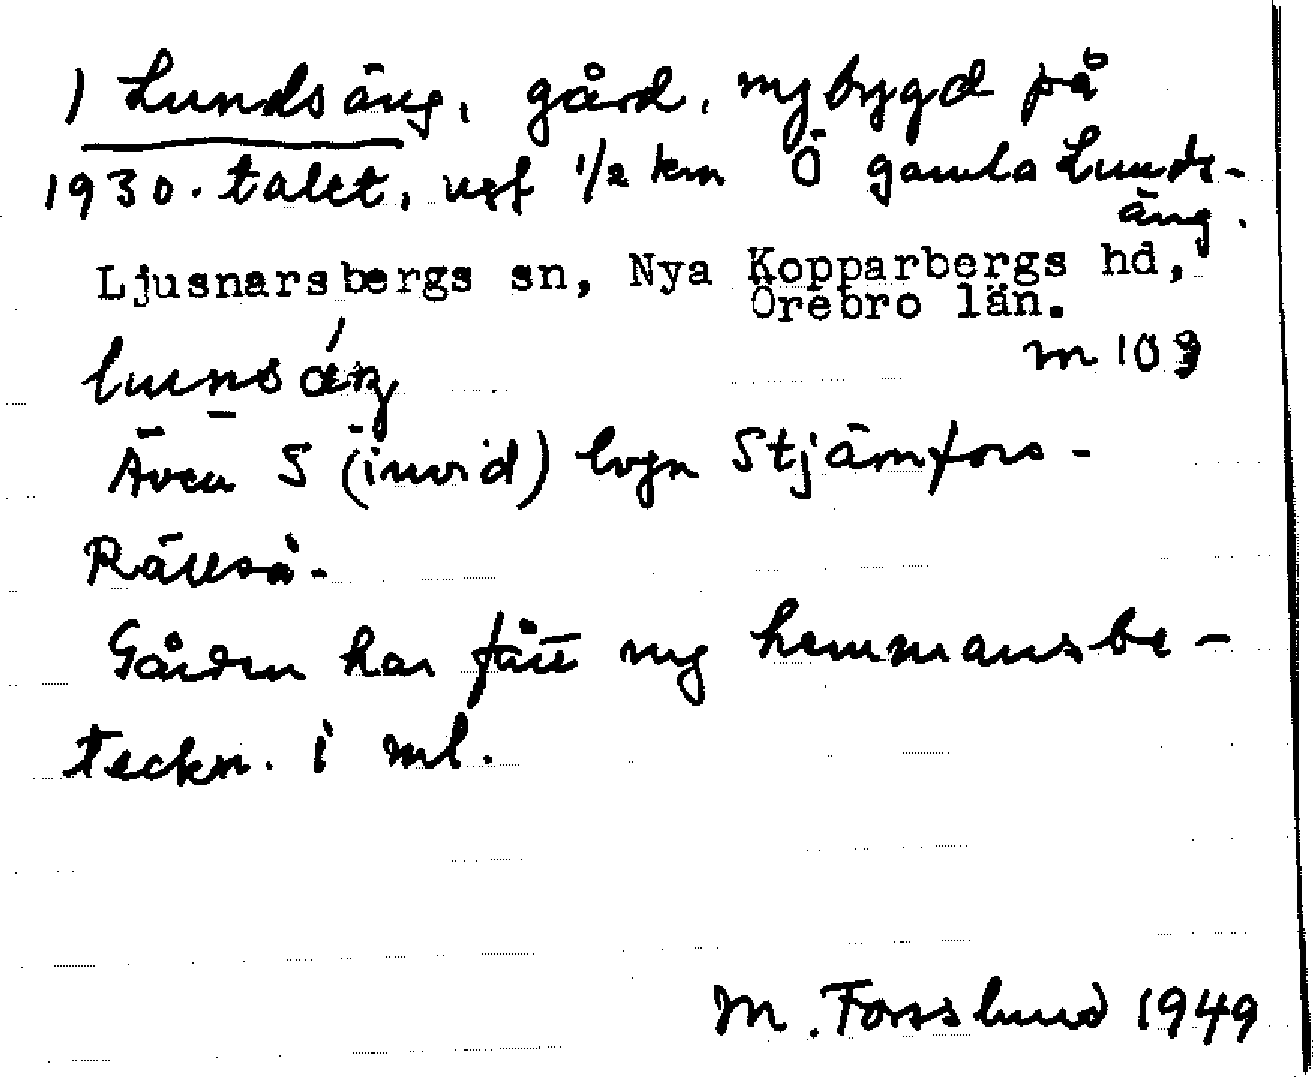 1) Lundsäng, gård, nybygd på
1930-talet, ugf 1/2 km Ö gamla Lunds-
äng.
Ljusnarsbergs sn, Nya Kopparbergs hd,
Örebro län.
m 103
Även S (invid) lvgn Stjärnfors-
Rällså.
Gården har fått ny hemmansbe-
teckn. i ml.
M. Forsslund 1949